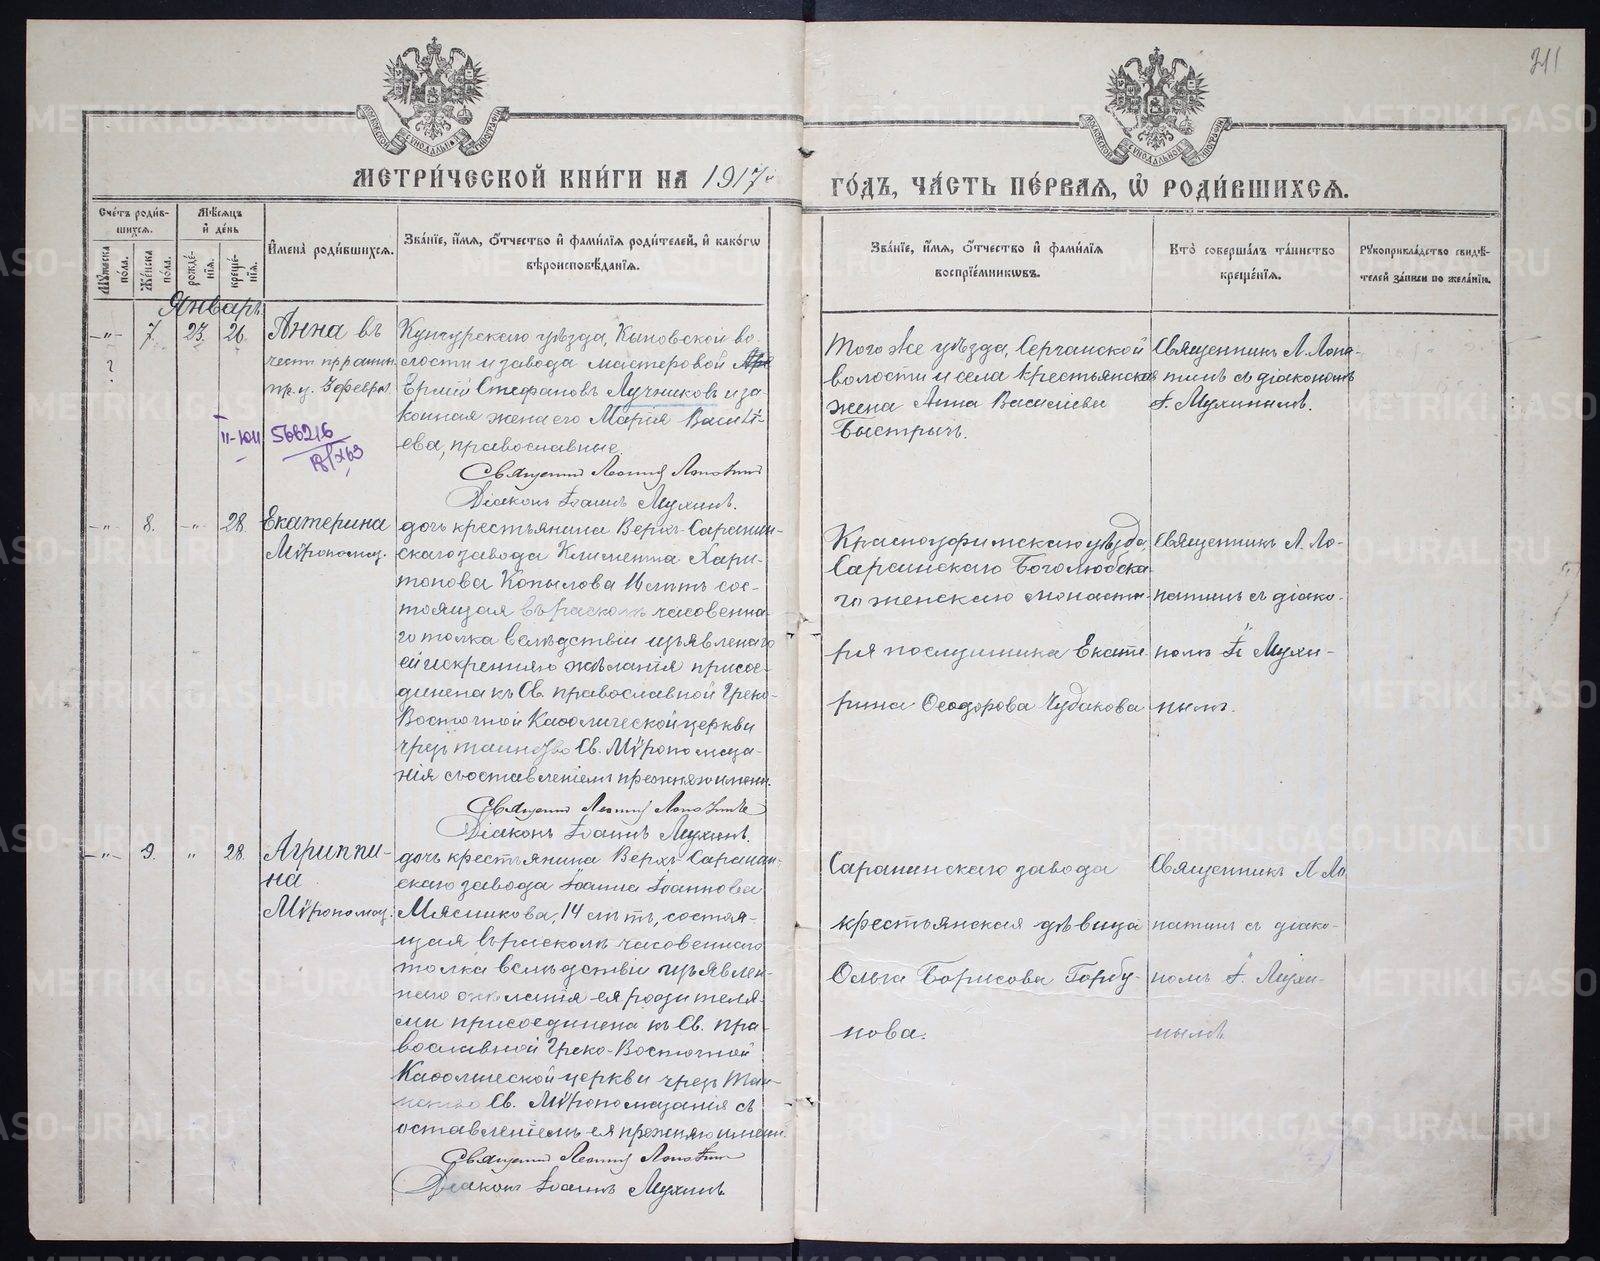 211
МЕТРИ́ЧЕСКОЙ КНИ́ГИ НА 1917й
ГО́ДЪ, ЧА́СТЬ ПЕ́РВАѦ, Ѡ҆ РОДИ́ВШИХСѦ.
Сче́тъ роди́в-
шихсѧ.
Мѣ́сѧцъ
и҆ де́нь
Мꙋ́жеска
по́ла.
Же́нска
по́ла.
рожде́-
нїѧ.
креще́-
нїѧ.
И҆мена̀ роди́вшихсѧ.
Зва́нїе, и҆́мѧ, ѻ҆́тчество и҆ фами́лїѧ роди́телей, и҆ како́гѡ
вѣроисповѣ́данїѧ.
Зва́нїе, и҆́мѧ, ѻ҆́тчество и҆ фами́лїѧ
воспрїе́мникѡвъ.
Кто̀ соверша́лъ та́инство
креще́нїѧ.
Рꙋкоприкла́дство свидѣ́-
телей за́писи по жела́нїю.
Январь
-"- 7. 23. 26. Анна въ
честь
пр. ц. 3 февраля
II-ЮЛ 566216
Кунгурскаго уѣзда, Кыновской во-
лости и завода мастеровой
Ермій Стефановъ Лучниковъ и за
конная жена его Марія Василі-
ева, православные
Священник Леонид Лопатин
Діаконъ Іоаннъ Мухинъ.
Того же уѣзда, Серчанской
волости и села крестьянская
жена Анна Василіева
Быстрыхъ.
Священникъ Л. Лопа-
тинъ съ діакономъ
І. Мухинымъ.
-"- 8. -"- 28 Екатерина
Мѵропомаз.
дочь крестьянина Верхъ-Саранин-
скаго завода Климента Хари-
тонова Копылова лѣтъ сос-
тоящая въ расколѣ часовенна-
го толка вслѣдствіи изъявленаго
ей искренняго желанія присое-
динена къ Св. православной Греко-
Восточной Каѳолической церкви
чрезъ таинство Св. Мѵропомаза-
нія съ оставленіемъ прежняго имени.
Священник Леонид Лопатинъ
Діаконъ Іоаннъ Мухинъ.
Красноуфимскаго уѣзда,
Сарсинскаго Боголюбска-
го женскаго монасты-
ря послушница Екате
рина Ѳеодорова Чудакова
Священникъ Л. Ло-
патинъ съ діако-
номъ І. Мухи-
нымъ.
-"- 9. " 28. Агриппи-
на
Мѵропомаз.
дочь крестьянина Верхъ-Саранин-
скаго завода Іоанна Іоаннова
Мясникова, 14 лѣтъ, состоя-
щая въ расколѣ часовеннаго
толка вслѣдствіи изъявлен-
наго желанія ея родителя-
ми присоединена къ Св. пра-
вославной Греко-Восточной
Каѳолической церкви чрезъ Таин-
ство Св. Мѵропомазанія съ
оставленіемъ ея прежняго имени.
Священник Леонид Лопатин
Діаконъ Іоаннъ Мухинъ.
Саранинскаго завода
крестьянская дѣвица
Ольга Борисова Горбу-
нова.
Священникъ Л. Ло
патинъ съ діако-
номъ І. Мухи-
нымъ
METRIKI.GASO-URAL.RU